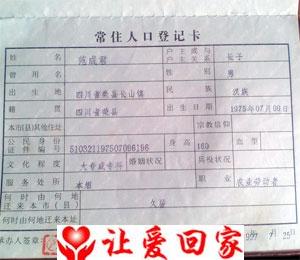 常住人口登记卡
姓名 陈成君 户主或与户主关系 长子
曾用名 性别 男
出生地 四川省荣县长山镇 民族 汉族
籍贯 四川省荣县 出生日期 1975年07月09日
本市(县)其他住址 宗教信仰
公民身份证件编号 510321197507096196 身高 160 血型
文化程度 婚姻状况 兵役状况
服务处所 本组 职业 农业劳动者
何时由何地迁来本市(县) 久居
何时由何地迁来本址
承办人签章
让爱回家